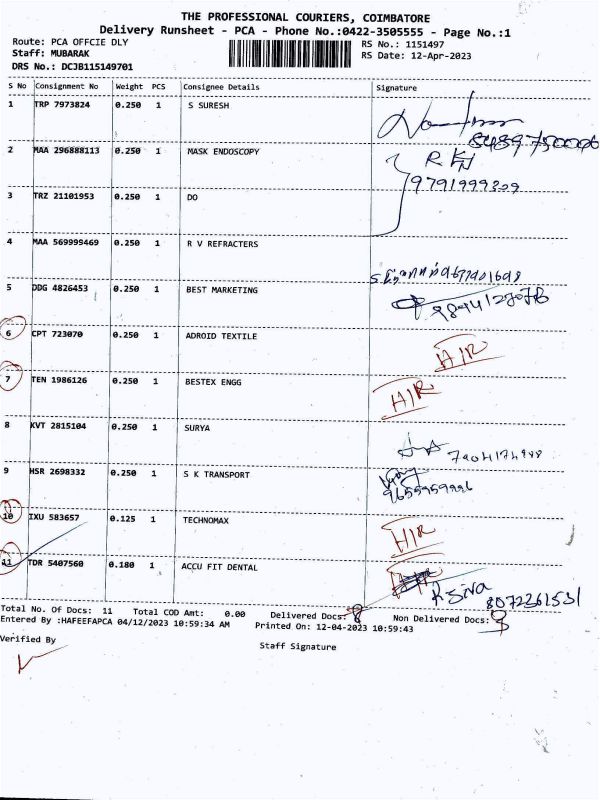 THE PROFESSIONAL COURIERS, COIMBATORE
Delivery Runsheet - PCA - Phone No.:0422-3505555 - Page No.:1
Route: PCA OFFCIE DLY
Staff: MUBARAK
DRS No.: DCJB115149701
RS No.: 1151497
RS Date: 12-Apr-2023
S No Consignment No Weight PCS Consignee Details Signature
1 TRP 7973824 0.250 1 S SURESH
2 MAA 296888113 0.250 1 MASK ENDOSCOPY
9791999309
3 TRZ 21101953 0.250 1 DO
4 MAA 569999469 0.250 1 R V REFRACTERS
5 DDG 4826453 0.250 1 BEST MARKETING
6 CPT 723070 0.250 1 ADROID TEXTILE
H/R
7 TEN 1986126 0.250 1 BESTEX ENGG
H/R
8 KVT 2815104 0.250 1 SURYA
9 HSR 2698332 0.250 1 S K TRANSPORT
10 IXU 583657 0.125 1 TECHNOMAX
H/R
11 TDR 5407560 0.180 1 ACCU FIT DENTAL
R Siva
8072361531
Total No. Of Docs: 11 Total COD Amt: 0.00 Delivered Docs: 8 Non Delivered Docs: 3
Entered By :HAFEEFAPCA 04/12/2023 10:59:34 AM Printed On: 12-04-2023 10:59:43
Verified By
Staff Signature